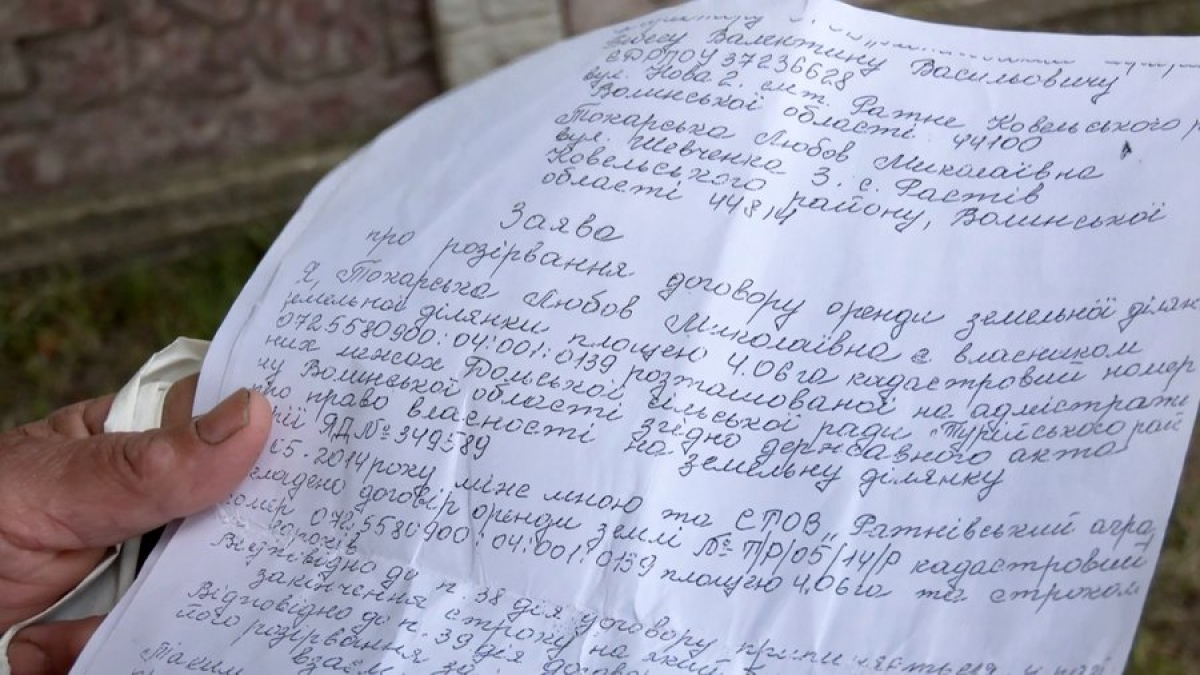 Валентину Васильовичу
ЄДРПОУ 37236628
вул. Нова 2. смт. Ратне Ковельського р
Волинської області 44100
Токарська Любов Миколаївна
вул. Шевченка 3. с. Растів
Ковельського району, Волинської
області 44814
Заява
про розірвання договору оренди земельної ділян
Я, Токарська Любов Миколаївна є власником
земельної ділянки площею 4.06 га кадастровий номер
0725580900:04:001:0139 розташованої на адмістрати
них межах сільської ради Турійського рай
ну Волинської області згідно державного акта
про право власності на земельну ділянку
рій ЯД № 349589
2014 року між мною та СТОВ „Ратнівський аграр
кладено договір оренди землі № П/Р/05/14/Р кадастровий
номер 0725580900:04:001:0139 площею 4,06 га та строком
років
Відповідно до п. 38 дія договору
закінчення строку на який
Відповідно до п. 39 дія догово
його розірвання
Таким